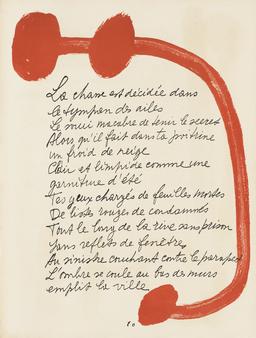 La chasse est décidée dans
le tympan des ailes
Le mui macabre de tenir le secret
Alors qu'il fait dans ta poitrine
un froid de neige
Clair et limpide comme une
garniture d'été
Tes yeux chargés de feuilles mortes
De listes rouges de condamnés
Tout le long de la rive sans prison
Sans reflets de fenêtres
Au sinistre couchant contre le parapet
L'ombre se coule au bas des murs
emplit la ville
80